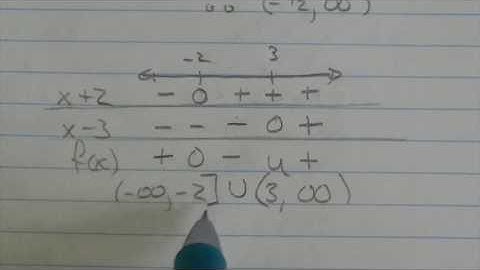 ∴ (-12, ∞)
-2 3
x+2 - 0 + + +
x-3 - - - 0 +
f(x) + 0 - u +
(-∞, -2] ∪ (3, ∞)